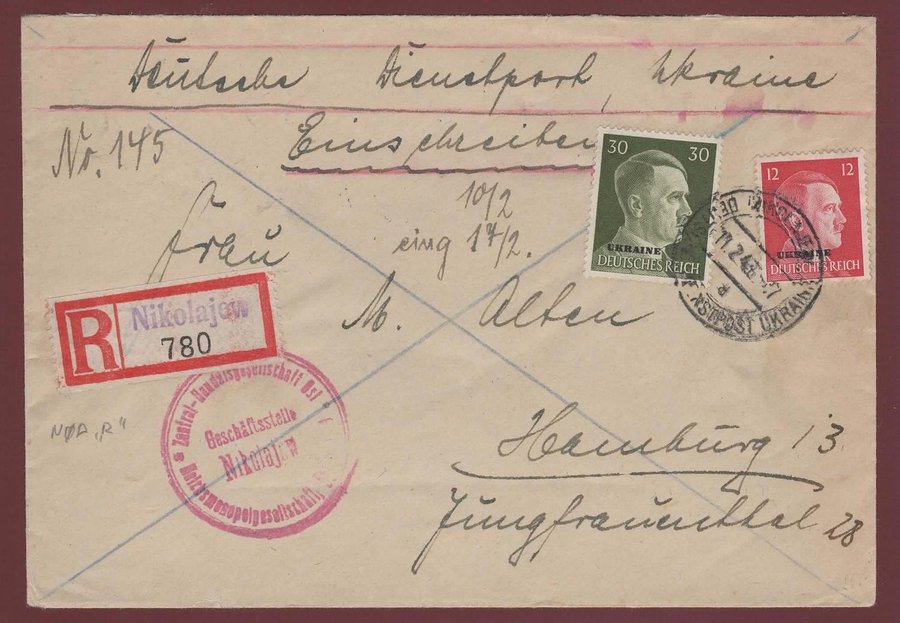 Deutsche Dienstpost, Ukraine
Einschreiben
No. 145
10/2
eing 17/2.
Frau
M. Alten
Hamburg 13
Jungfrauenthal 28
30 30
UKRAINE
DEUTSCHES REICH
12 12
UKRAINE
DEUTSCHES REICH
11.2.43
DIENSTPOST UKRAINE
R
Nikolajew
780
Zentral-Handelsgesellschaft Ost
Geschäftsstelle
Nikolajew
Reichsmonopolgesellschaft